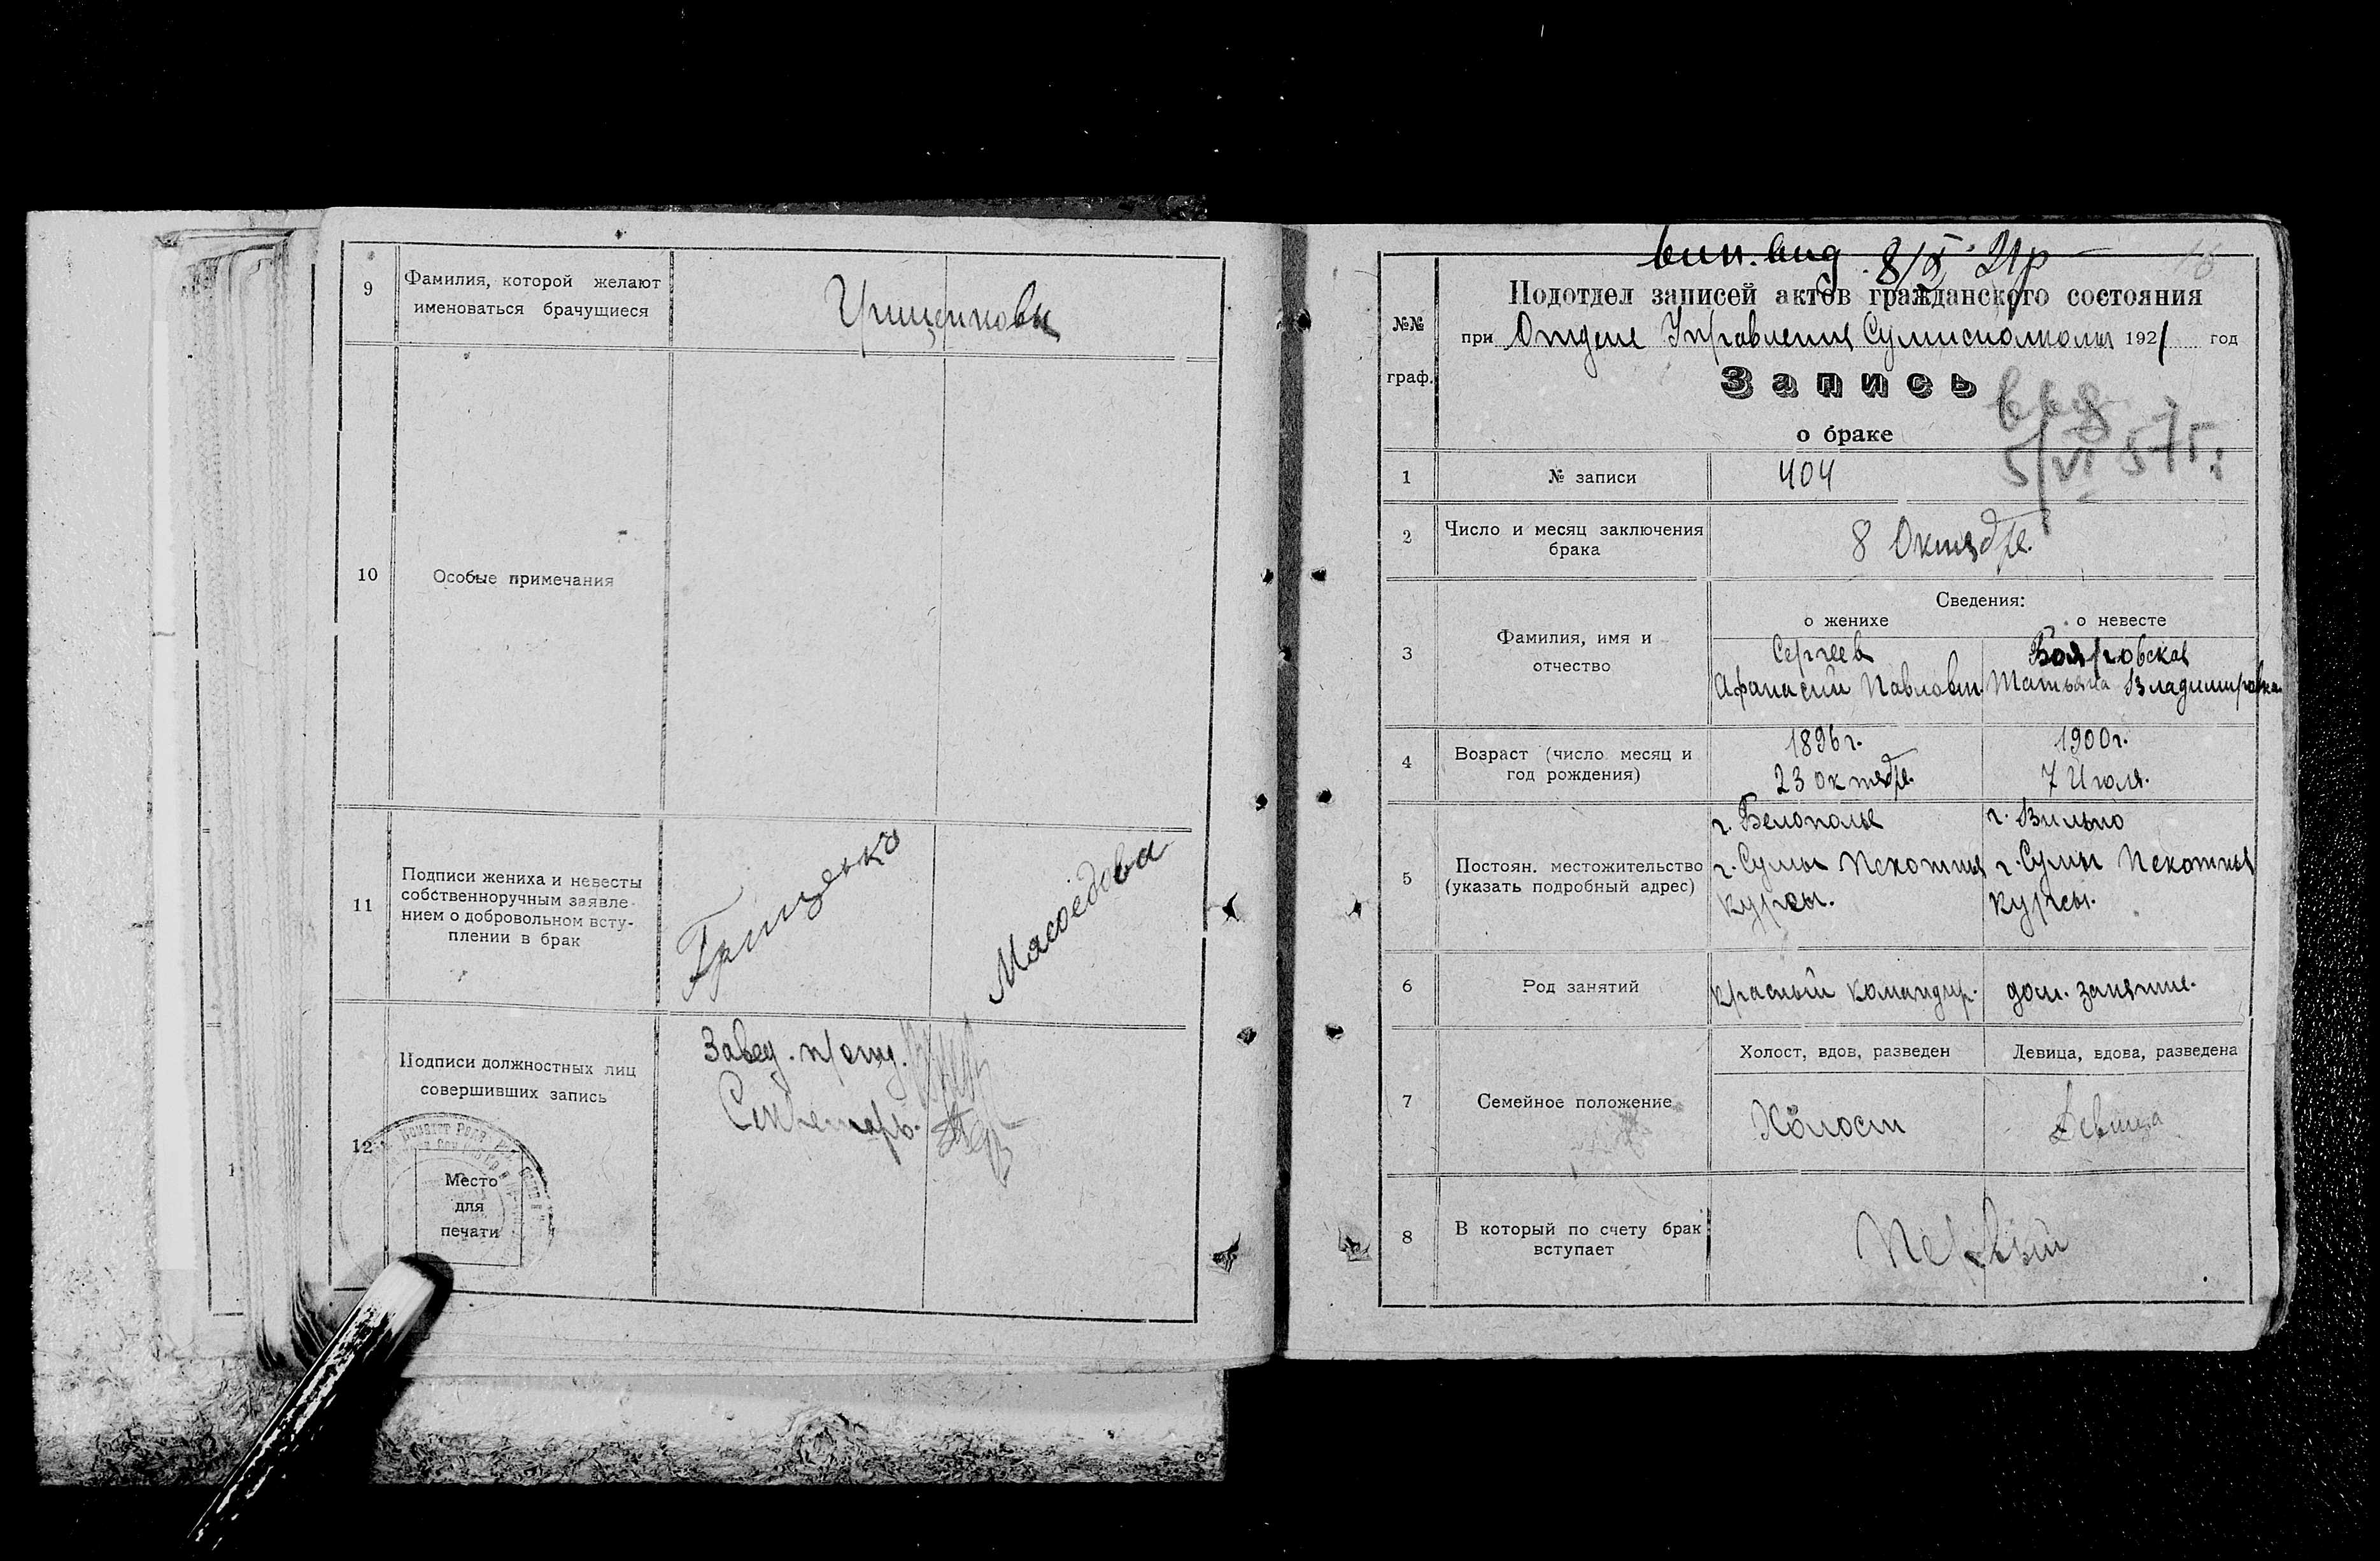 9
Фамилия, которой желают
именоваться брачущиеся
Грищенковы
10
Особые примечания
11
Подписи жениха и невесты
собственноручным заявле-
нием о добровольном всту-
плении в брак
Грищенко
Масоедова
12
Подписи должностных лиц
совершивших запись
Завед. п/отд.
Секретарь.
Место
для
печати
вид 8/X 21р
№№
граф.
Подотдел записей актов гражданского состояния
при Отделе Управления Сумисполкома 1921 год
Запись
о браке
5/VI 57г.
1
№ записи
404
2
Число и месяц заключения
брака
8 Октября.
Сведения:
о женихе
о невесте
3
Фамилия, имя и
отчество
Сергеев
Афанасий Павлович
Бояровская
Татьяна Владимировна
4
Возраст (число месяц и
год рождения)
1896г.
23 октября.
1900г.
7 Июля.
5
Постоян. местожительство
(указать подробный адрес)
г. Белополье
г. Сумы Пехотные
курсы.
г. Вильно
г. Сумы Пехотные
курсы.
6
Род занятий
красный командир.
дом. занятие.
7
Семейное положение
Холост, вдов, разведен
Девица, вдова, разведена
Холост
Девица
8
В который по счету брак
вступает
Первый